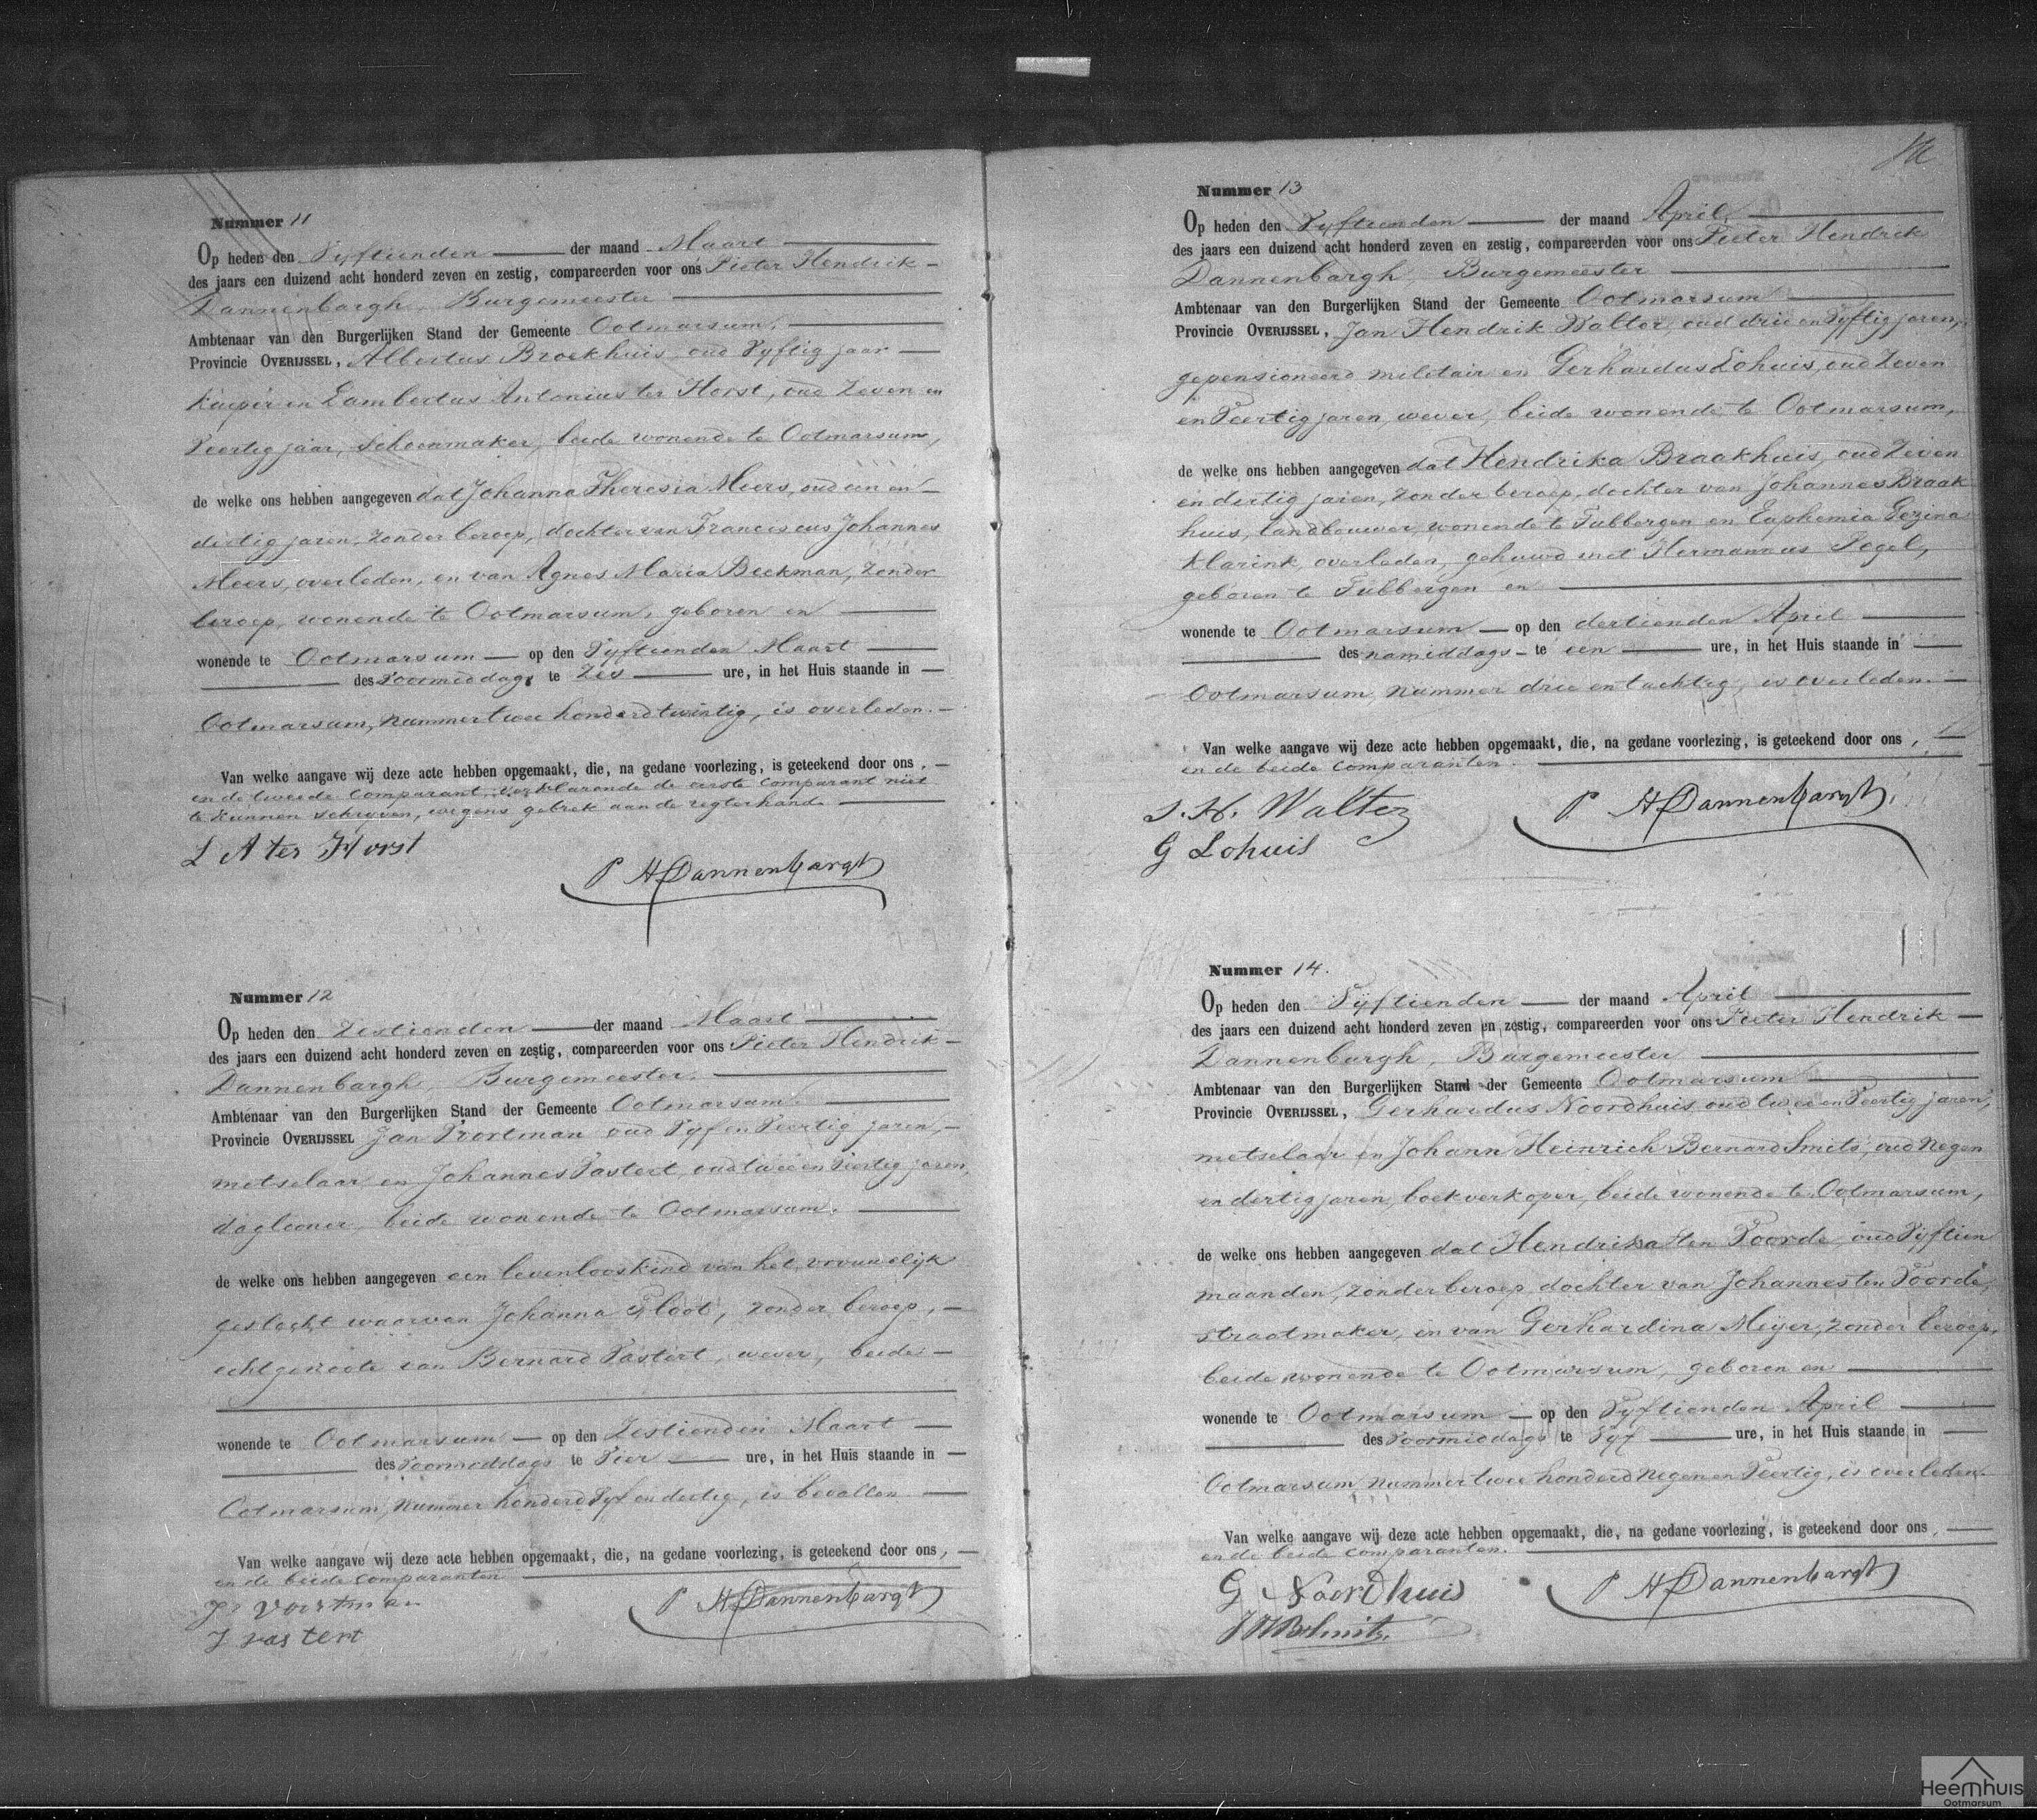 Nummer 11
Op heden den Vyftienden der maand Maart
des jaars een duizend acht honderd zeven en zestig, compareerden voor ons Pieter Hendrik
Dannenbargh, Burgemeester
Ambtenaar van den Burgerlijken Stand der Gemeente Ootmarsum,
Provincie OVERIJSSEL, Albertus Broekhuis, oud Vyftig jaar
Kuiper en Lambertus Antonius ter Horst, oud Zeven en
Veertig jaar, Schoenmaker, beide wonende te Ootmarsum,
de welke ons hebben aangegeven dat Johanna Theresia Meers, oud een en
dertig jaren, zonder beroep, dochter van Franciscus Johannes
Meers, overleden, en van Agnes Maria Beekman, zonder
beroep, wonende te Ootmarsum, geboren en
wonende te Ootmarsum op den Vyftienden Maart
des Voormiddags te Zes ure, in het Huis staande in
Ootmarsum, Nummer twee honderd twintig, is overleden.
Van welke aangave wij deze acte hebben opgemaakt, die, na gedane voorlezing, is geteekend door ons,
en de tweede comparant, verklarende de eerste comparant niet
te kunnen schryven, wegens gebrek aan de regterhand.
L A ter Horst
P H Dannenbargh
Nummer 12
Op heden den Zestienden der maand Maart
des jaars een duizend acht honderd zeven en zestig, compareerden voor ons Pieter Hendrik
Dannenbargh, Burgemeester.
Ambtenaar van den Burgerlijken Stand der Gemeente Ootmarsum.
Provincie OVERIJSSEL Jan Voortman oud Vyf en Veertig jaren,
metselaar, en Johannes Vastert, oud twee en Veertig jaren,
daglooner, beide wonende te Ootmarsum.
de welke ons hebben aangegeven een levenloos kind van het vrouwelijk
geslacht waarvan Johanna Sloot, zonder beroep,
echtgenoote van Bernard Vastert, wever, beide
wonende te Ootmarsum op den Zestienden Maart
des Voormiddags te Vier ure, in het Huis staande in
Ootmarsum, Nummer honderd Vyf en dertig, is bevallen.
Van welke aangave wij deze acte hebben opgemaakt, die, na gedane voorlezing, is geteekend door ons,
en de beide comparanten
Jn Voortman
J vastert
P H Dannenbargh
Nummer 13
Op heden den Vyftienden der maand April,
des jaars een duizend acht honderd zeven en zestig, compareerden voor ons Pieter Hendrik
Dannenbargh, Burgemeester
Ambtenaar van den Burgerlijken Stand der Gemeente Ootmarsum
Provincie OVERIJSSEL, Jan Hendrik Walter, oud drie en Vyftig jaren,
gepensioneerd militair en Gerhardus Lohuis, oud Zeven
en Veertig jaren, wever, beide wonende te Ootmarsum,
de welke ons hebben aangegeven dat Hendrika Braakhuis, oud Zeven
en dertig jaren, zonder beroep, dochter van Johannes Braak
huis, landbouwer, wonende te Tubbergen en Euphemia Gezina
Klarink, overleden, gehuwd met Hermannus Segel,
geboren te Tubbergen en
wonende te Ootmarsum op den dertienden April
des namiddags te een ure, in het Huis staande in
Ootmarsum, Nummer drie en tachtig, is overleden.
Van welke aangave wij deze acte hebben opgemaakt, die, na gedane voorlezing, is geteekend door ons,
en de beide comparanten.
J. H. Walter
G Lohuis
P H Dannenbargh
Nummer 14.
Op heden den Vyftienden der maand April
des jaars een duizend acht honderd zeven en zestig, compareerden voor ons Pieter Hendrik
Dannenburgh, Burgemeester
Ambtenaar van den Burgerlijken Stand der Gemeente Ootmarsum
Provincie OVERIJSSEL, Gerhardus Noordhuis, oud twee en Veertig jaren,
metselaar en Johann Heinrich Bernard Smits, oud Negen
en dertig jaren, boekverkoper, beide wonende te Ootmarsum,
de welke ons hebben aangegeven dat Hendrika ten Voorde, oud Vyftien
maanden, zonder beroep, dochter van Johannes ten Voorde,
straatmaker, en van Gerhardina Meijer, zonder beroep,
beide wonende te Ootmarsum, geboren en
wonende te Ootmarsum op den Vyftienden April
des Voormiddags te Vyf ure, in het Huis staande in
Ootmarsum, Nummer twee honderd Negen en Veertig, is overleden.
Van welke aangave wij deze acte hebben opgemaakt, die, na gedane voorlezing, is geteekend door ons,
en de beide comparanten.
G Noordhuis
J H B Smits
P H Dannenbargh
Heemhuis
Ootmarsum